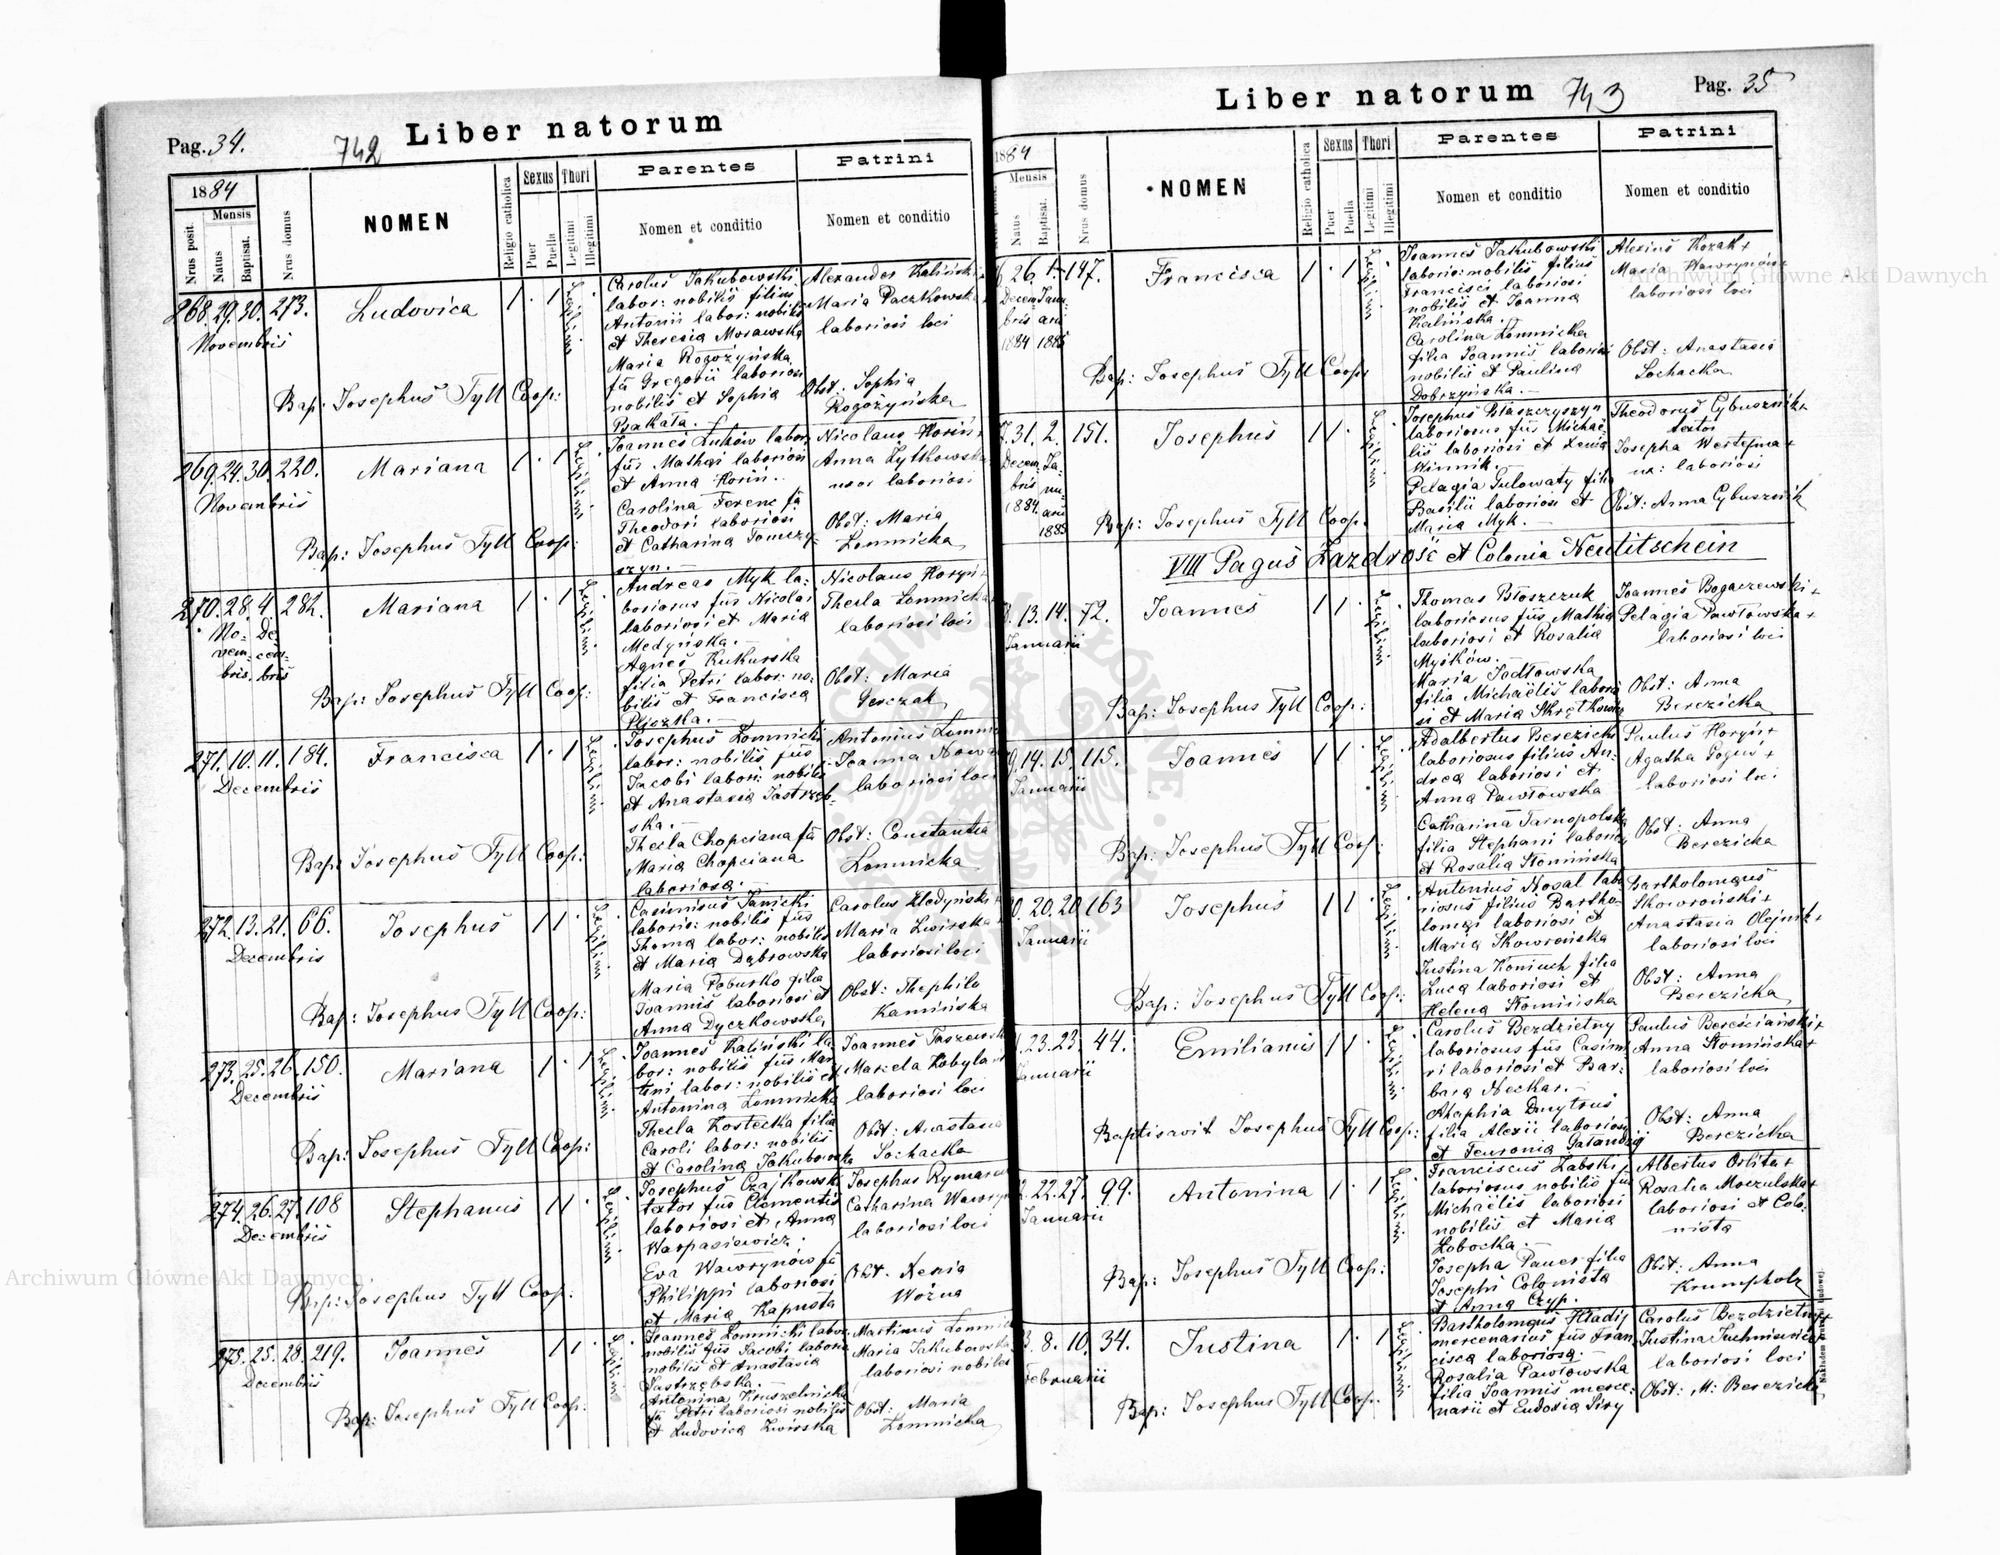 Pag. 34.
742
Liber natorum
1884
Mensis
Nrus posit.
Natus
Baptisat.
Nrus domus
NOMEN
Religio catholica
Sexus
Puer
Puella
Thori
Legitimi
Illegitimi
Parentes
Nomen et conditio
Patrini
Nomen et conditio
268. 29. 30. 273.
Novembris
Ludovica
1 . 1
Legitimi
Carolus Jakubowski
labor: nobilis filius
Antonii labor: nobilis
et Theresia Morawska
Maria Rogożyńska
fa Gregorii laboriosi
nobilis et Sophia
Bakała.
Alexander Kaliński
Maria Paczkowska
laboriosi loci
Obst. Sophia
Rogożyńska
Bap: Josephus Tyll Coop:
269. 24. 30. 220.
Novembris
Mariana
1 . 1
Legitimi
Joannes Łuków labor.
fus Mathaei laboriosi
et Anna Horin.
Carolina Ferenc fa
Theodori laboriosi
et Catharina Tomczy-
szyn.
Nicolaus Horin
Anna Żytkowska
uxor laboriosi
Obst: Maria
Łomnicka
Bap: Josephus Tyll Coop:
270. 28. 4. 282.
No- De
vem- cem-
bris. bris
Mariana
1 . 1
Legitimi
Andreas Myk la-
boriosus fus Nicolai
laboriosi et Maria
Medyńska.
Agnes Kukurska
filia Petri labor: no-
bilis et Francisca
Pliczka.
Nicolaus Horyń
Thecla Łomnicka
laboriosi loci
Obst: Maria
Gerczak
Bap: Josephus Tyll Coop:
271. 10. 11. 184.
Decembris
Francisca
1 . 1
Legitimi
Josephus Łomnicki
labor: nobilis fus
Jacobi labori: nobilis
et Anastasia Jastrzęb-
ska.
Thecla Chopciana fa
Maria Chopciana
laboriosa.
Antonius Łomni
Joanna Nowa
laboriosi loci
Obst: Constantia
Łomnicka
Bap: Josephus Tyll Coop:
272. 13. 21. 66.
Decembris
Josephus
1 1 .
Legitimi
Casimirus Janicki
laborio: nobilis fus
Thoma labor: nobilis
et Maria Dąbrowska
Maria Poburko filia
Joannis laboriosi et
Anna Dyczkowska
Carolus Hladyński
Maria Zwirska
laboriosi loci
Obst: Thephila
Kamińska
Bap: Josephus Tyll Coop:
273. 25. 26. 150.
Decembris
Mariana
1 . 1
Legitimi
Joannes Kaliński la
bor: nobilis fus Mar
tini labor: nobilis et
Antonina Łomnicka
Thecla Kostecka filia
Caroli labor: nobilis
et Carolina Jakubowska
Joannes Jaszewski
Marcela Kobylań
laboriosi loci
Obst: Anastasia
Sochacka
Bap: Josephus Tyll Coop:
274. 26. 27. 108
Decembris
Stephanus
1 1 .
Legitimi
Josephus Czajkowski
textor fus Clementis
laboriosi et Anna
Warpasiewicz.
Eva Wawrynów fa
Philippi laboriosi
et Maria Kapusta
Josephus Rymar
Catharina Wawryn
laboriosi loci
Obst. Xenia
Woźna
Bap: Josephus Tyll Coop:
275. 25. 28. 219.
Decembris
Joannes
1 1 .
Legitimi
Joannes Łomnicki labor.
nobilis fus Jacobi laborio
nobilis et Anastasia
Jastrzębska.
Antonina Kruszelnicka
fa Petri laboriosi nobilis
et Ludovica Zwirska
Martinus Łomnic
Maria Jakubowska
laboriosi nobiles
Obst: Maria
Łomnicka
Bap: Josephus Tyll Coop:
Liber natorum
743
Pag. 35
1884
Mensis
Natus
Baptisat.
Nrus domus
NOMEN
Religio catholica
Sexus
Puer
Puella
Thori
Legitimi
Illegitimi
Parentes
Nomen et conditio
Patrini
Nomen et conditio
6. 26. 1. 147.
Decem Janu
bris arii
1884 1885
Francisca
1 . 1
Legitimi
Joannes Jakubowski
laborio: nobilis filius
Francisci laboriosi
nobilis et Joanna
Kalińska.
Carolina Łomnicka
filia Joannis laboriosi
nobilis et Paulina
Dobrzyńska.
Alexius Kozak +
Maria Wawrynów
laboriosi loci
Obst: Anastasia
Sochacka
Bap: Josephus Tyll Coop.
7. 31. 2. 151.
Decem Ja-
bris nu-
1884. arii
1885
Josephus
1 1 .
Legitimi
Josephus Błaszczyszyn
laboriosus fus Michae-
lis laboriosi et Xenia
Winnik.
Pelagia Gulowaty filia
Basilii laboriosi et
Maria Myk.
Theodorus Cybusznik +
textor
Josepha Wertejma +
ux: laboriosi
Obst: Anna Cybusznik
Bap: Josephus Tyll Coop.
VIII Pagus Zazdrość et Colonia Neutitschein
8. 13. 14. 72.
Januarii
Joannes
1 1 .
Legitimi
Thomas Błoszczuk
laboriosus fus Mathia
laboriosi et Rosalia
Myśków.
Maria Jodłowska
filia Michaëlis laborio
si et Maria Skrętkowicz
Joannes Bogaczewski +
Pelagia Pawłowska +
laboriosi loci
Obst: Anna
Berezicka
Bap: Josephus Tyll Coop:
9. 14. 15. 115.
Januarii
Joannes
1 1 .
Legitimi
Adalbertus Berezicki
laboriosus filius An-
drea laboriosi et
Anna Pawłowska
Catharina Tarnopolska
filia Stephani laborio
et Rosalia Słomińska
Paulus Horyń +
Agatha Goguś +
laboriosi loci
Obst: Anna
Berezicka
Bap: Josephus Tyll Coop:
10. 20. 20. 163
Januarii
Josephus
1 1 .
Legitimi
Antonius Nosal labo
riosus filius Bartho-
lomaei laboriosi et
Maria Skowrońska
Justina Koniuch filia
Luca laboriosi et
Helena Słomińska
Bartholomaeus
Skowroński +
Anastasia Olejnik +
laboriosi loci
Obst: Anna
Berezicka
Bap: Josephus Tyll Coop:
23. 23. 44.
Januarii
Emilianus
1 1 .
Legitimi
Carolus Bezdzietny
laboriosus fus Casimi
ri laboriosi et Bar-
bara Neckar.
Ahaphia Dmytrus
filia Alexii laboriosi
et Feuronia Gatanda
Paulus Bereściański +
Anna Słomińska +
laboriosi loci
Obst: Anna
Berezicka
Baptisavit Josephus Tyll Coop:
2. 22. 27. 99.
Januarii
Antonina
1 . 1
Legitimi
Franciscus Zabski
laboriosus nobilis fus
Michaëlis laboriosi
nobilis et Maria
Łobocka.
Josepha Pauer filia
Josephi Colonista
et Anna Czyp.
Albertus Orlita +
Rosalia Moczulska +
laboriosi et Colo-
nista
Obst: Anna
Krumpholz
Bap: Josephus Tyll Coop:
3. 8. 10. 34.
Februarii
Justina
1 . 1
Legitimi
Bartholomaeus Hladij
mercenarius fus Fran
cisca laboriosa.
Rosalia Pawłowska
filia Joannis merce-
narii et Eudoxia Siry
Carolus Bezdzietny +
Justina Juchniewicz
laboriosi loci
Obst: M: Berezicka
Bap: Josephus Tyll Coop.
Archiwum Główne Akt Dawnych
Archiwum Główne Akt Dawnych